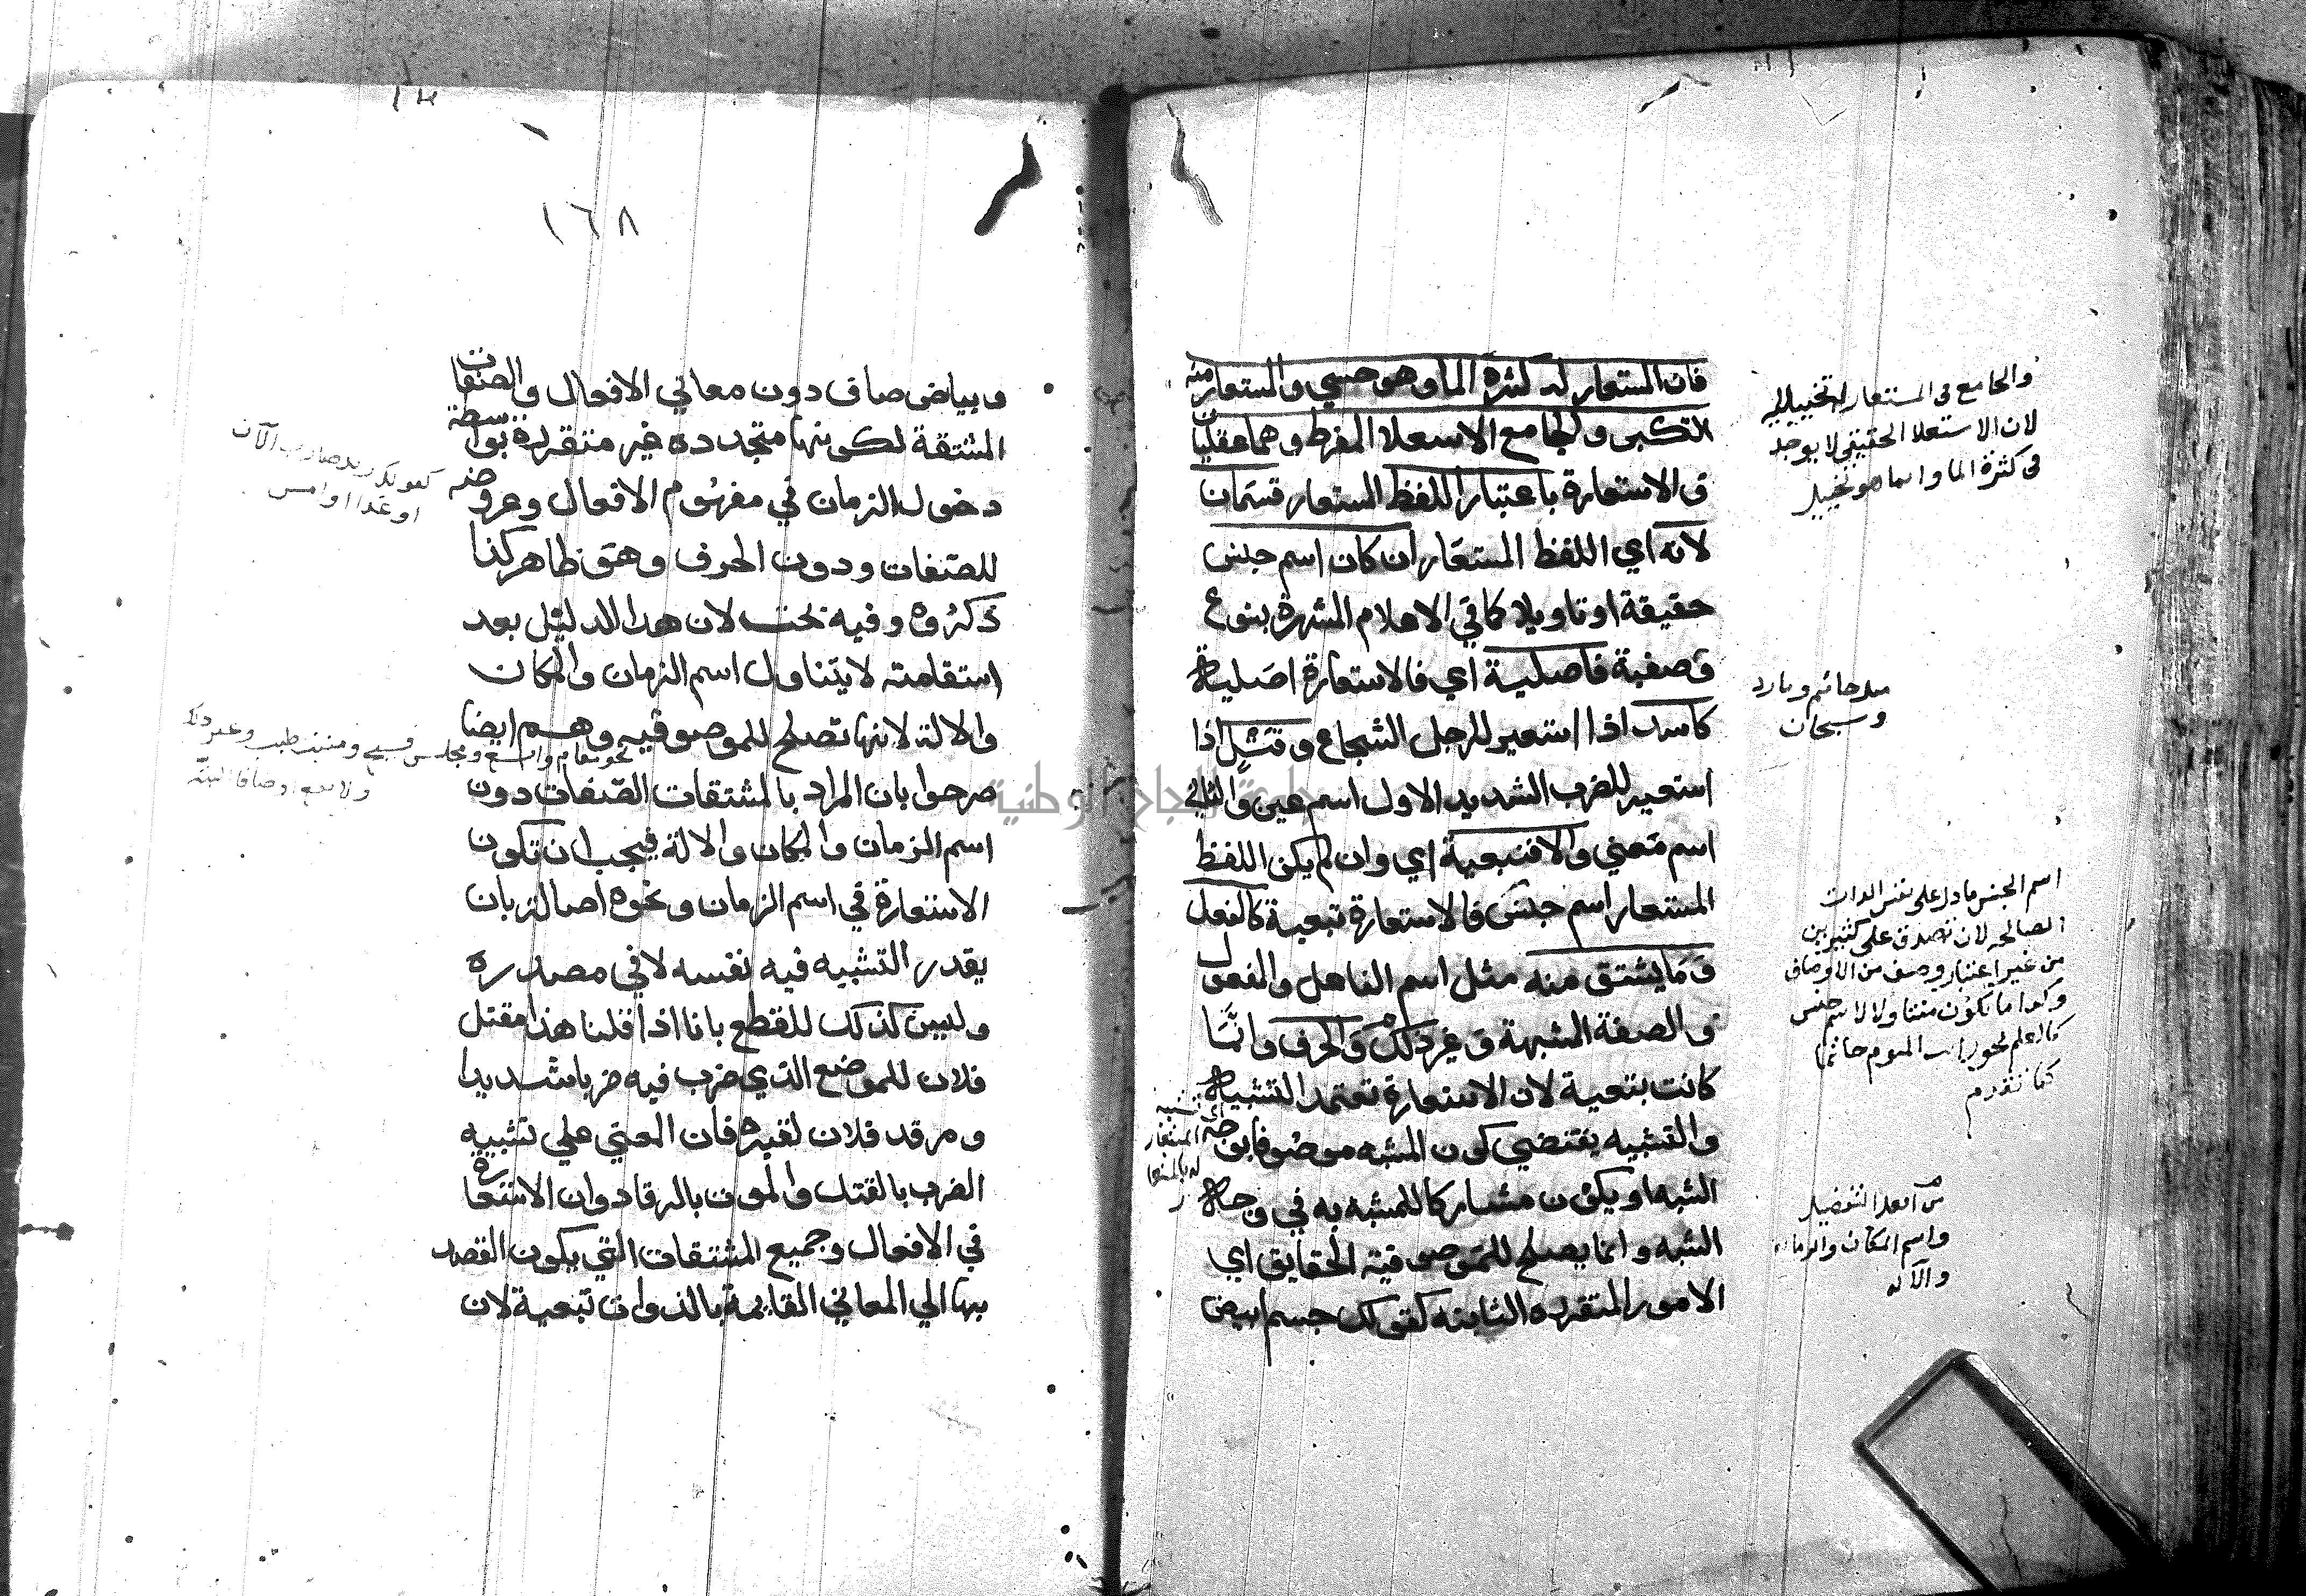 فان المستعار له كثرة الما وهو حسي والمستعار منه
التكبر والجامع الاستعلا المفرط وهما عقليان
و الاستعارة باعتبار اللفظ المستعار قسمان
لانه اي اللفظ المستعار ان كان اسم جنس
حقيقة او تاويلا كما في الاعلام المشهرة بنوع
وصفية فاصلية اي فالاستعارة اصلية
كاسد اذا استعير للرجل الشجاع وقتل اذا
استعير للضرب الشديد الاول اسم عين والثاني
اسم معني والا فتبعية اي وان لم يكن اللفظ
المستعار اسم جنس فالاستعارة تبعية كالفعل
وما يشتق منه مثل اسم الفاعل والمفعول
والصفة المشبهة وغير ذلك والحرف وانما
كانت تبعية لان الاستعارة تعتمد التشبيه
والتشبيه يقتضي كون المشبه موصوفا بوجه
الشبه او يكون مشاركا للمشبه به في وجه
الشبه وانما يصلح للموصوفية الحقايق اي
الامور المتقرره الثابته كقولك جسم ابيض
والجامع في المستعار له تخييلي
لان الاستعلا الحقيقي لا يوجد
في كثرة الما وانما هو تخييل
مثل حاتم ومارد
وسحبان
اسم الجنس ما دل على نفس الذات
الصالحه لان تصدق على كثيرين
من غير اعتبار وصف من الاوصاف
وكذا ما يكون متناولا لاسم جنس
كالعلم نحو رايت اليوم حاتما
كما تقدم
اي تشبيه
المستعار
له بالمستعا
ر
من افعل التفضيل
واسم المكان والزمان
والاله
١٦٨
وبياض صاف دون معاني الافعال والصفات
المشتقة لكونها متجدده غير متقررة بواسطة
دخول الزمان في مفهوم الافعال وعروضه
للصفات ودون الحرف وهو ظاهر كذا
ذكروه وفيه بحث لان هذا الدليل بعد
استقامته لا يتناول اسم الزمان والمكان
والالة لانها تصلح للموصوفيه وهم ايضا
صرحوا بان المراد بالمشتقات الصفات دون
اسم الزمان والمكان والالة فيجب ان تكون
الاستعارة في اسم الزمان ونحوه اصالة بان
يقدر التشبيه فيه نفسه لا في مصدره
وليس كذلك للقطع بانا اذا قلنا هذا مقتل
فلان للموضع الذي ضرب فيه ضربا شديدا
ومرقد فلان لقبره فان المعني علي تشبيه
الضرب بالقتل والموت بالرقاد وان الاستعارة
في الافعال وجميع المشتقات التي يكون القصد
بها الي المعاني القايمة بالذوات تبعية لان
كقولك زيد ضارب الآن
او غدا او امس
نحو مقام واسع ومجلس فسيح ومنبت طيب وغير ذلك
جامعة النجاح الوطنية